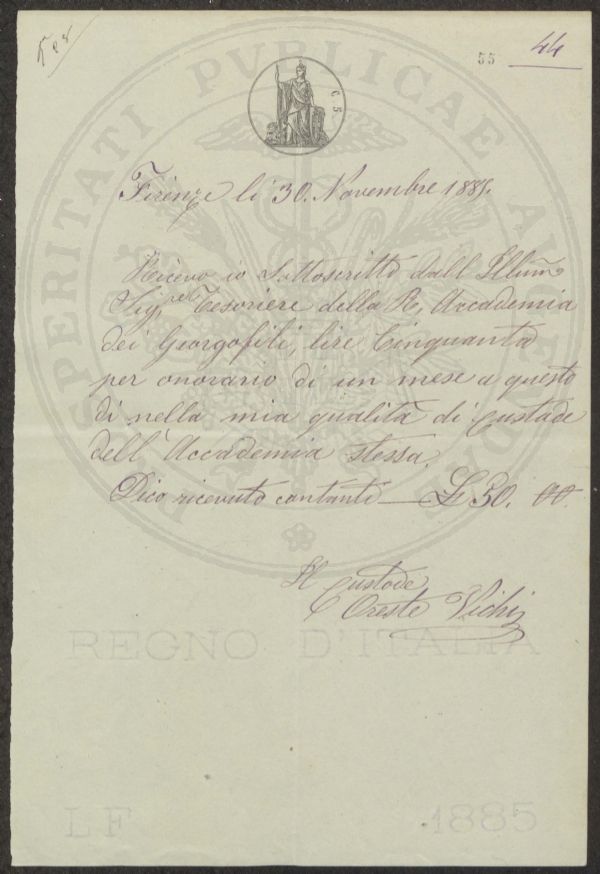 55
44
C. 5
PROSPERITATI PUBLICAE AUGENDAE
Firenze li 30. Novembre 1885.
Ricevo io Sottoscritto dall Illmo
Sig. re Tesoriere della R. Accademia
dei Georgofili, lire Cinquanta
per onorario di un mese a questo
dì nella mia qualità di Custode
dell'Accademia stessa.
Dico ricevuto contanti — L 50. 00.
Il Custode
Oreste Vichi
REGNO D'ITALIA
LF 1885